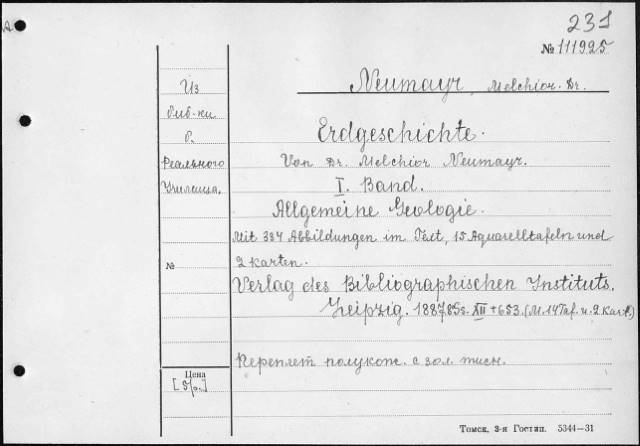 231
№ 111925
Neumayr, Melchior. Dr.
Из
биб-ки
б.
Реального
Училища.
Erdgeschichte.
Von Dr. Melchior Neumayr.
I. Band.
Allgemeine Geologie.
Mit 334 Abbildungen im Text, 15 Aquarelltafeln und
2 Karten.
№
Verlag des Bibliographischen Instituts.
Leipzig. 1887. Ss. XII + 653. (M. 14 Taf. u. 2 Kart.)
Переплет полукож. с зол. тисн.
Цена
Томск, 3-я Гостип. 5344—31